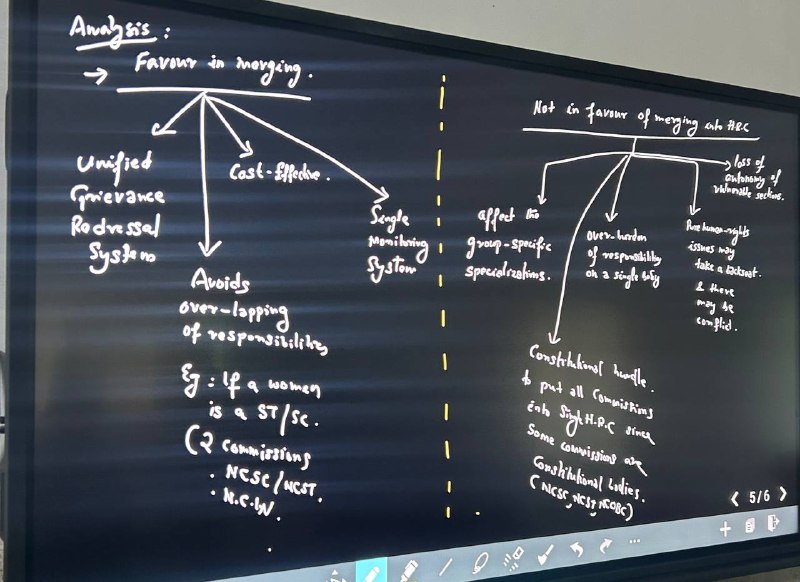 Analysis :
→ Favour in merging.
Unified
Grievance
Redressal
System
Cost-Effective.
Single
Monitoring
System
Avoids
over-lapping
of responsibilities
Eg : If a women
is a ST/SC.
(2 commissions
· NCSC/NCST.
· N.C.W.
Not in favour of merging into H.R.C
affect the
group-specific
specializations.
over-burden
of responsibility
on a single body
Pure human-rights
issues may
take a backseat.
& there
may be
conflict.
loss of
autonomy of
vulnerable sections.
Constitutional hurdle.
to put all Commissions
into Single H.R.C since
Some commissions are
Constitutional bodies.
(NCSC, NCST, NCBC)
5/6